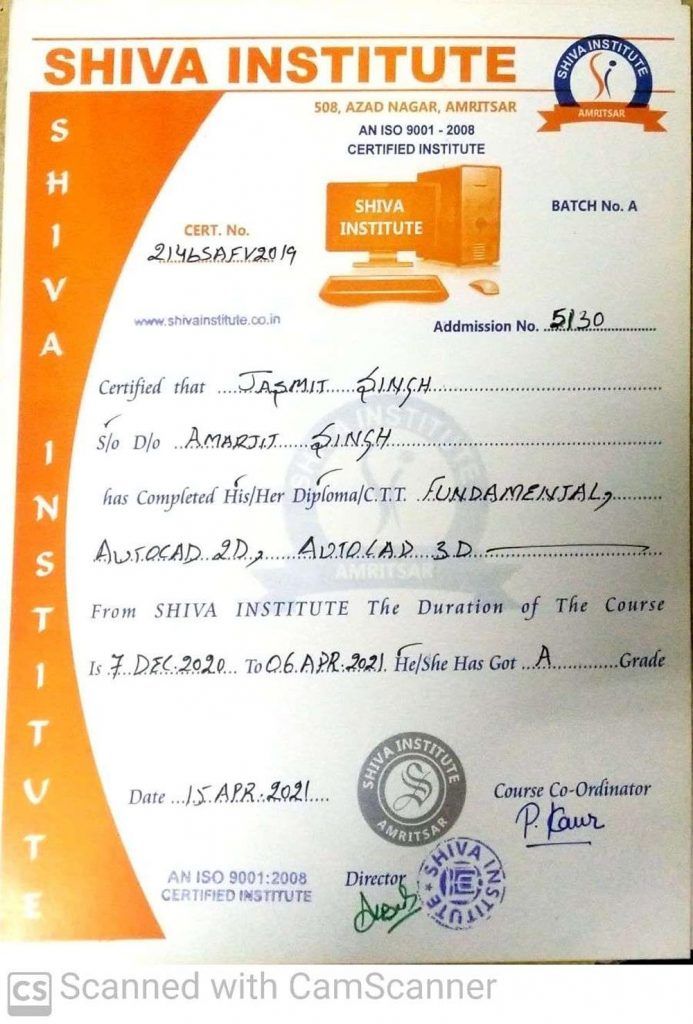 SHIVA INSTITUTE
SHIVA INSTITUTE
AMRITSAR
508, AZAD NAGAR, AMRITSAR
AN ISO 9001 - 2008
CERTIFIED INSTITUTE
SHIVA INSTITUTE
SHIVA
INSTITUTE
BATCH No. A
CERT. No.
2146SAFV2019
www.shivainstitute.co.in
Addmission No. 5130
Certified that JASMIT SINGH
S/o D/o AMARJIT SINGH
has Completed His/Her Diploma/C.T.T. FUNDAMENTAL,
AUTOCAD 2D, AUTOCAD 3D
SHIVA INSTITUTE
AMRITSAR
From SHIVA INSTITUTE The Duration of The Course
Is 7 DEC.2020 To 06.APR.2021 He/She Has Got A Grade
SHIVA INSTITUTE
S
AMRITSAR
Date 15.APR.2021
Course Co-Ordinator
P. Kaur
AN ISO 9001:2008
CERTIFIED INSTITUTE
Director
SHIVA INSTITUTE
CS Scanned with CamScanner